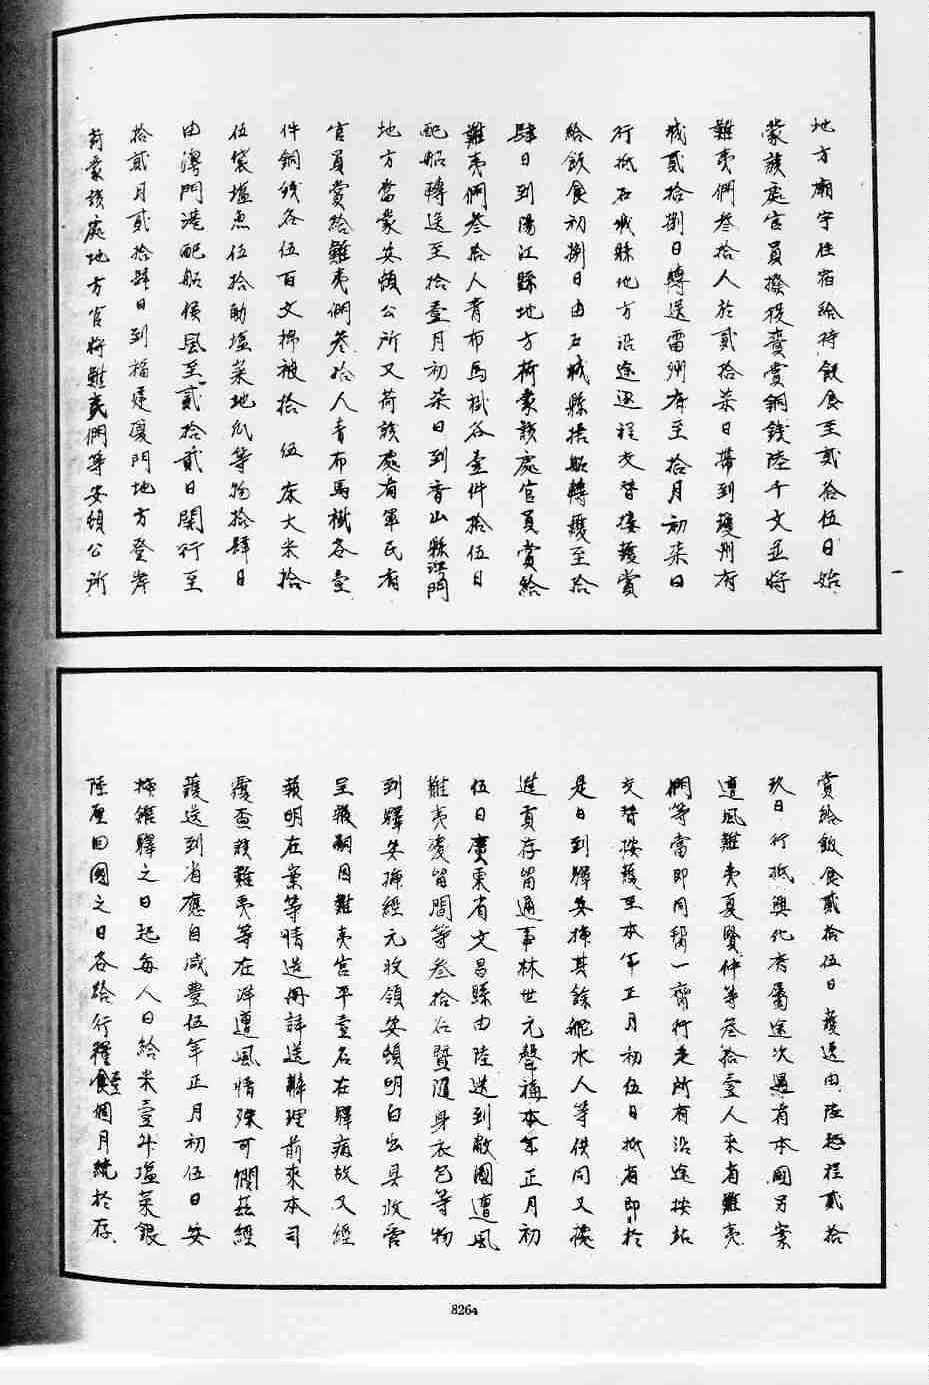 地方廟宇住宿給待飯食至貳拾伍日始
蒙該處官員撥役賫賞銅錢陸千文並將
難夷們叁拾人於貳拾柒日帶到瓊州府
城貳拾捌日轉送雷州府至拾月初柒日
行抵石城縣地方沿途逐程交替接護賞
給飯食初捌日由石城縣撥船轉護至拾
肆日到陽江縣地方荷蒙該處官員賞給
難夷們叁拾人青布馬褂各壹件拾伍日
配船轉送至拾壹月初柒日到香山縣澳門
地方當蒙安頓公所又荷該處有軍民府
官員賞給難夷們叁拾人青布馬褂各壹
件銅錢各伍百文棉被拾伍床大米拾
伍袋塩魚伍拾觔塩菜地瓜等物拾肆日
由澳門港配船候風至貳拾貳日開行至
拾貳月貳拾肆日到福建廈門地方登岸
荷蒙該處地方官將難夷們等安頓公所
賞給飯食貳拾伍日護送由陸起程貳拾
玖日行抵興化府屬途次遇有本國另案
遭風難夷夏賢仲等叁拾壹人來省難夷
們等當即同幫一齊行走所有沿途按站
交替接護至本年正月初伍日抵省即於
是日到驛安揷其餘舵水人等供同又據
進貢存留通事林世元聲稱本年正月初
伍日廣東省文昌縣由陸送到敝國遭風
難夷慶留間等叁拾名暨隨身衣包等物
到驛安揷經元收領安頓明白出具收管
呈繳嗣因難夷宮平壹名在驛病故又經
報明在案等情造冊詳送辦理前來本司
覆查該難夷等在洋遭風情殊可憫茲經
護送到省應自咸豐伍年正月初伍日安
揷館驛之日起每人日給米壹升塩菜銀
陸厘回國之日各給行糧壹個月統於存